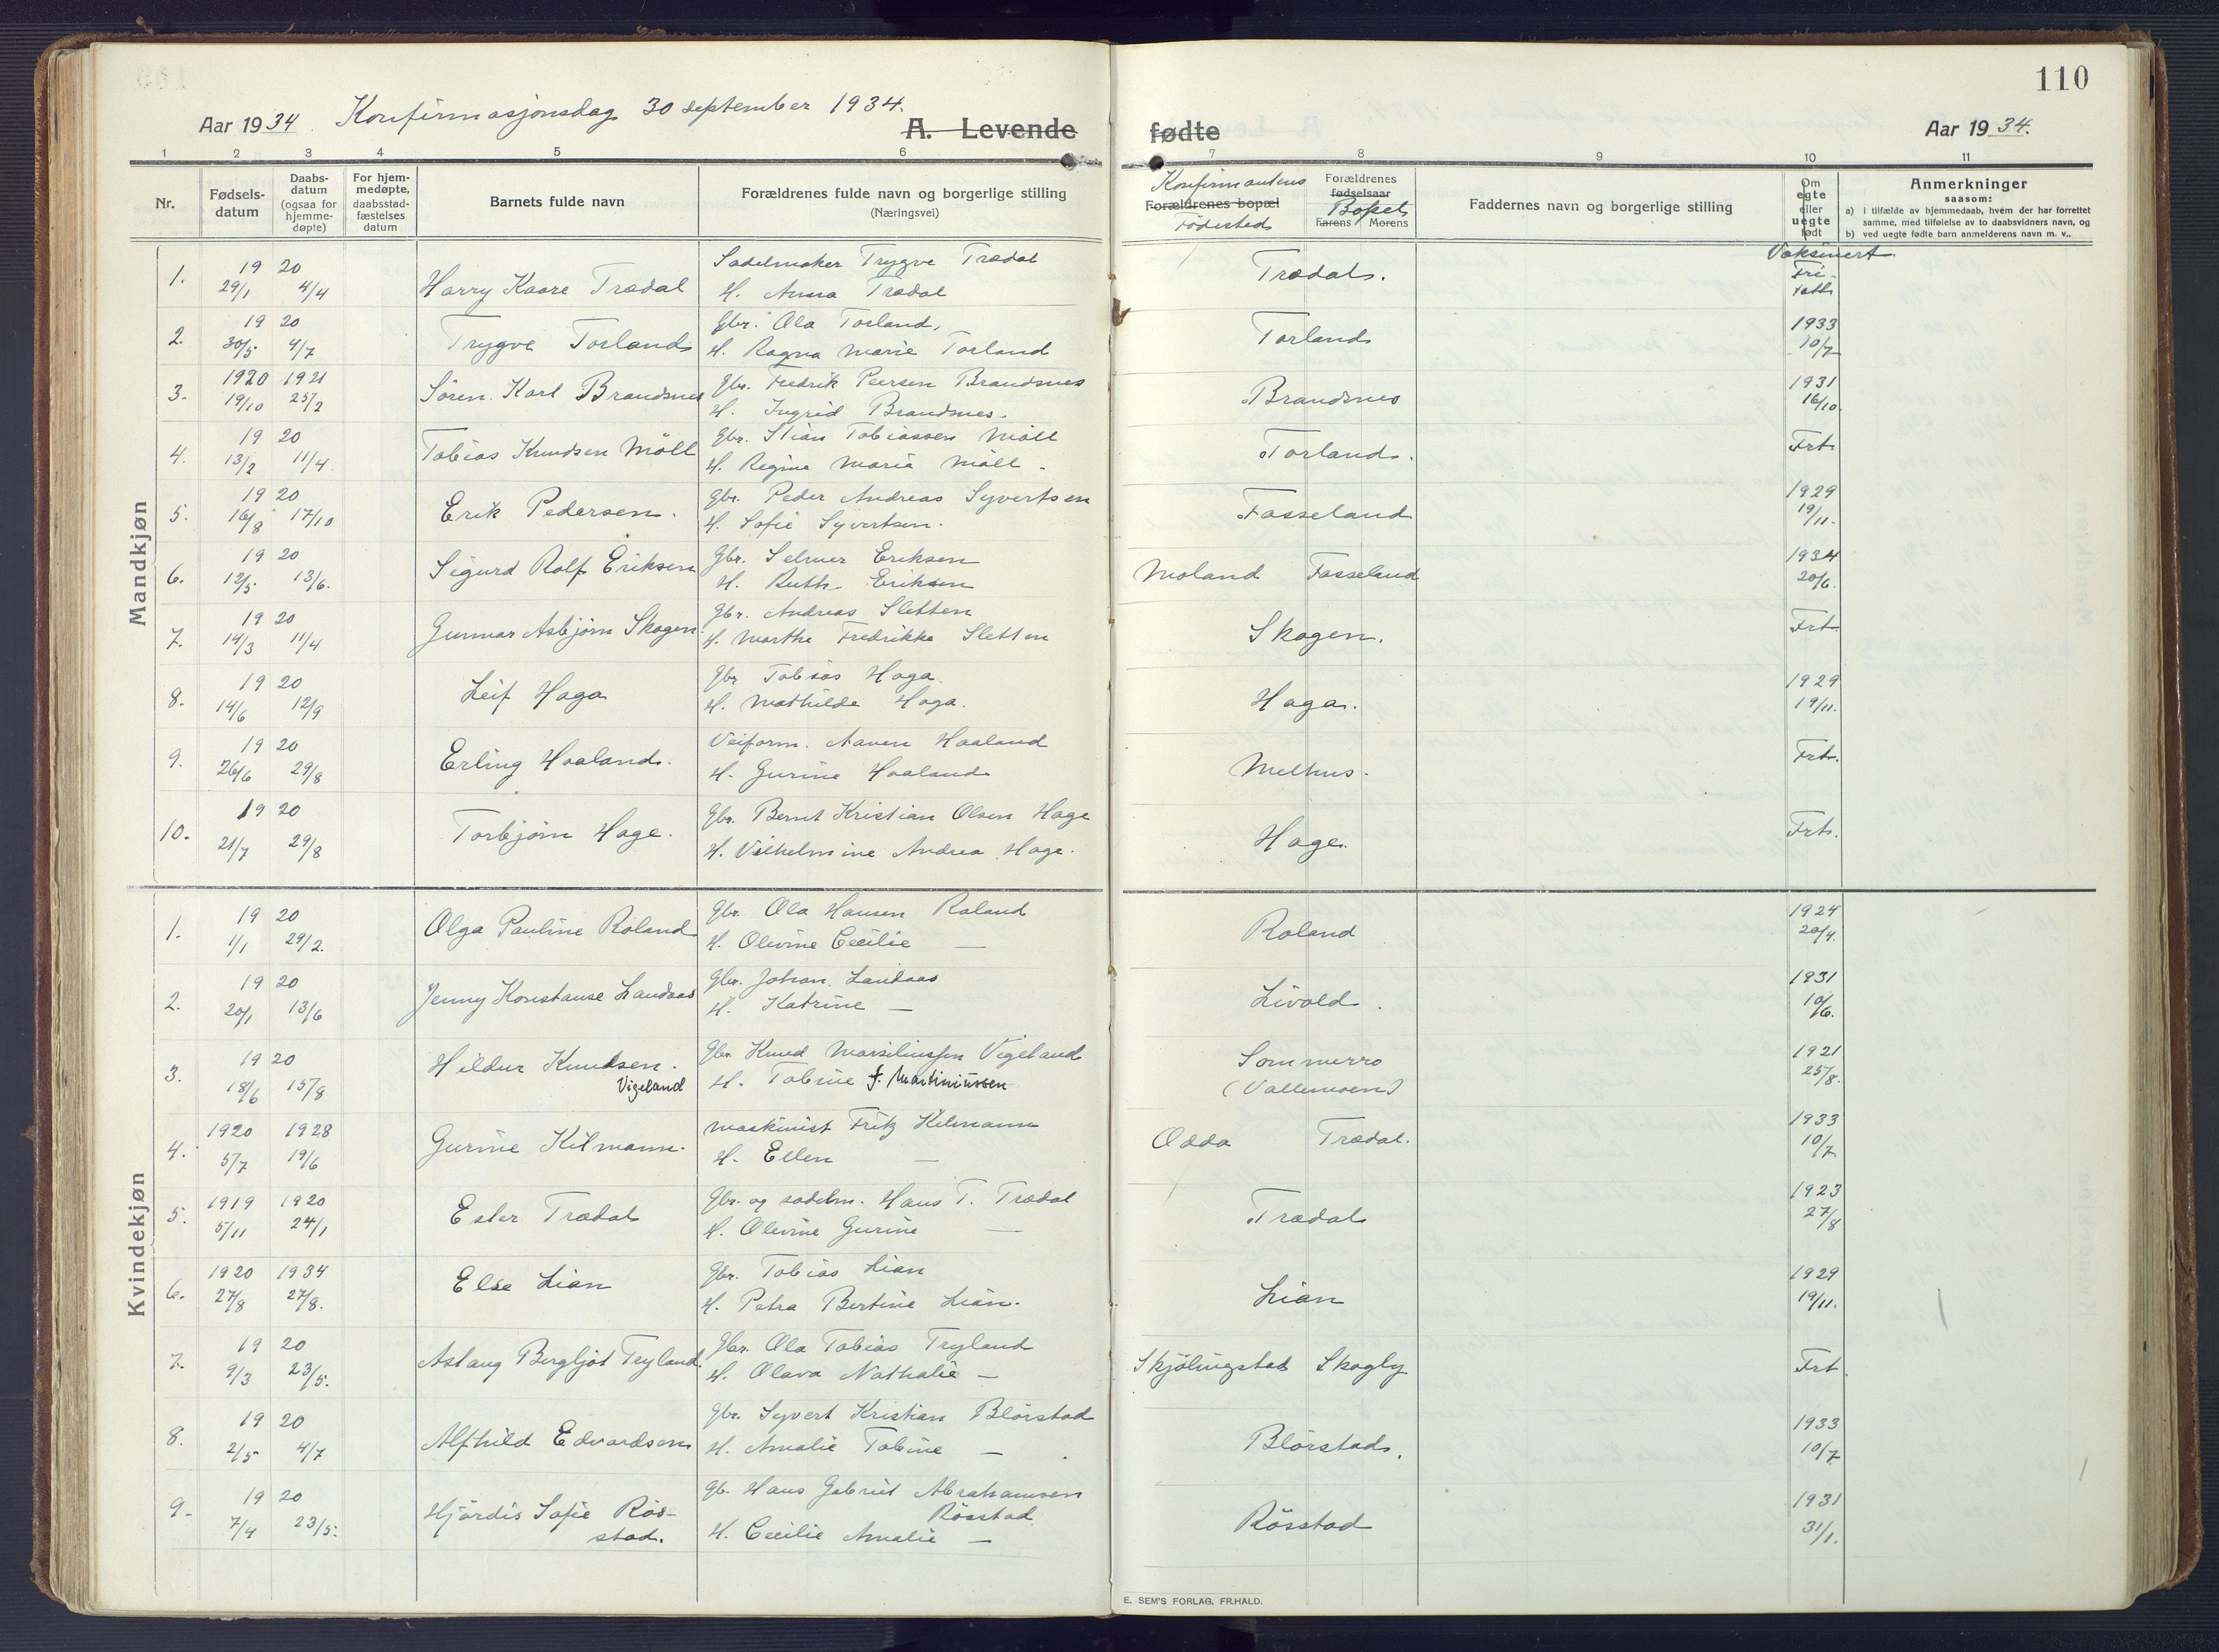 110
Aar 1934. Konfirmasjonsdag 30 september 1934.
A. Levende fødte
Aar 1934.
1 2 3 4 5 6 7 8 9 10 11
Nr.
Fødsels-
datum
Daabs-
datum
(ogsaa for
hjemme-
døpte)
For hjem-
medøpte,
daabsstad-
fæstelses
datum
Barnets fulde navn
Forældrenes fulde navn og borgerlige stilling
(Næringsvei)
Konfirmantens
Forældrenes bopæl
Fødested
Forældrenes
fødselsaar
Bopel
Farens Morens
Faddernes navn og borgerlige stilling
Om
egte
eller
uegte
født
Anmerkninger
saasom:
a) i tilfælde av hjemmedaab, hvem der har forrettet
samme, med tilføielse av to daabsvidners navn, og
b) ved uegte fødte barn anmelderens navn m. v..
Vaksinert
Mandkjøn
1. 19 20 29/1 4/4 Harry Kaare Trædal
Sadelmaker Trygve Trædal
H. Anna Trædal
Trædal.
2. 19 20 30/5 4/7 Trygve Torland
Gbr. Ola Torland,
H. Ragna Marie Torland
Torland
1933
10/7
3. 1920 1921 19/10 25/2 Sören Karl Brandsnes
Gbr. Fredrik Peersen Brandsnes
H. Ingrid Brandsnes.
Brandsnes
1931
16/10
4. 19 20 13/2 11/4 Tobias Knudsen Möll
Gbr. Stian Tobiassen Möll
H. Regine Marie Möll.
Torland.
Frt
5. 19 20 16/8 17/10 Erik Pedersen.
Gbr. Peder Andreas Syvertsen
H. Sofie Syvertsen.
Fasseland
1929
19/11.
6. 19 20 12/5 13/6. Sigurd Rolf Eriksen
Gbr. Selmer Eriksen
H. Ruth Eriksen
Moland Fasseland
1934
20/6.
7. 19 20 14/3 11/4 Gunnar Asbjörn Skogen
Gbr. Andreas Sletten
H. Marthe Fredrikke Sletten
Skogen.
Frt.
8. 19 20 14/6 12/9 Leif Haga
Gbr. Tobias Haga
H. Mathilde Haga.
Haga.
1929
19/11.
9. 19 20 26/6 29/8 Erling Haaland.
Veiform. Aanen Haaland
H. Gurine Haaland
Melhus.
Frt.
10. 19 20 21/7 29/8 Torbjörn Hage.
Gbr. Bernt Kristian Olsen Hage
H. Vilhelmine Andrea Hage.
Hage.
Frt.
Kvindekjøn
1. 19 20 1/1 29/2. Olga Pauline Roland
Gbr. Ola Hansen Roland
H. Olevine Cecilie —
Roland
1924
20/4.
2. 19 20 20/1 13/6 Jenny Konstanse Landaas
Gbr. Johan Landaas
H. Katrine —
Livold.
1931
10/6.
3. 19 20 18/6 15/8 Hildur Knudsen.
Vigeland
Gbr. Knud Marsiliussen Vigeland
H. Tobine f. Martiniussen
Sommerro
(Vallemoen)
1921
25/8.
4. 1920 1928 5/7 19/6 Gurine Kilmann.
Maskinist Fritz Kilmann
H. Ellen —
Odda Trædal.
1933
10/7
5. 1919 1920 5/11 24/1 Ester Trædal
Gbr. og sadelm. Hans T. Trædal
H. Olevine Gurine —
Trædal
1923
27/8
6. 1920 1934 27/8 27/8. Else Lian
Gbr. Tobias Lian
H. Petra Bertine Lian.
Lian
1929
19/11.
7. 19 20 9/3 23/5. Aslaug Bergljot Tryland
Gbr. Ola Tobias Tryland
H. Olava Nathalie —
Skjölingstad Skogly
Frt.
8. 19 20 2/5 4/7 Alfhild Edvardsen
Gbr. Syvert Kristian Blörstad
H. Amalie Tobine —
Blörstad.
1933
10/7
9. 19 20 7/4 23/5. Hjördis Sofie Rös-
stad.
Gb. Hans Gabriel Abrahamsen
Rösstad
H. Cecilie Amalie —
Rösstad
1931
31/1.
E. SEM'S FORLAG, FR.HALD.